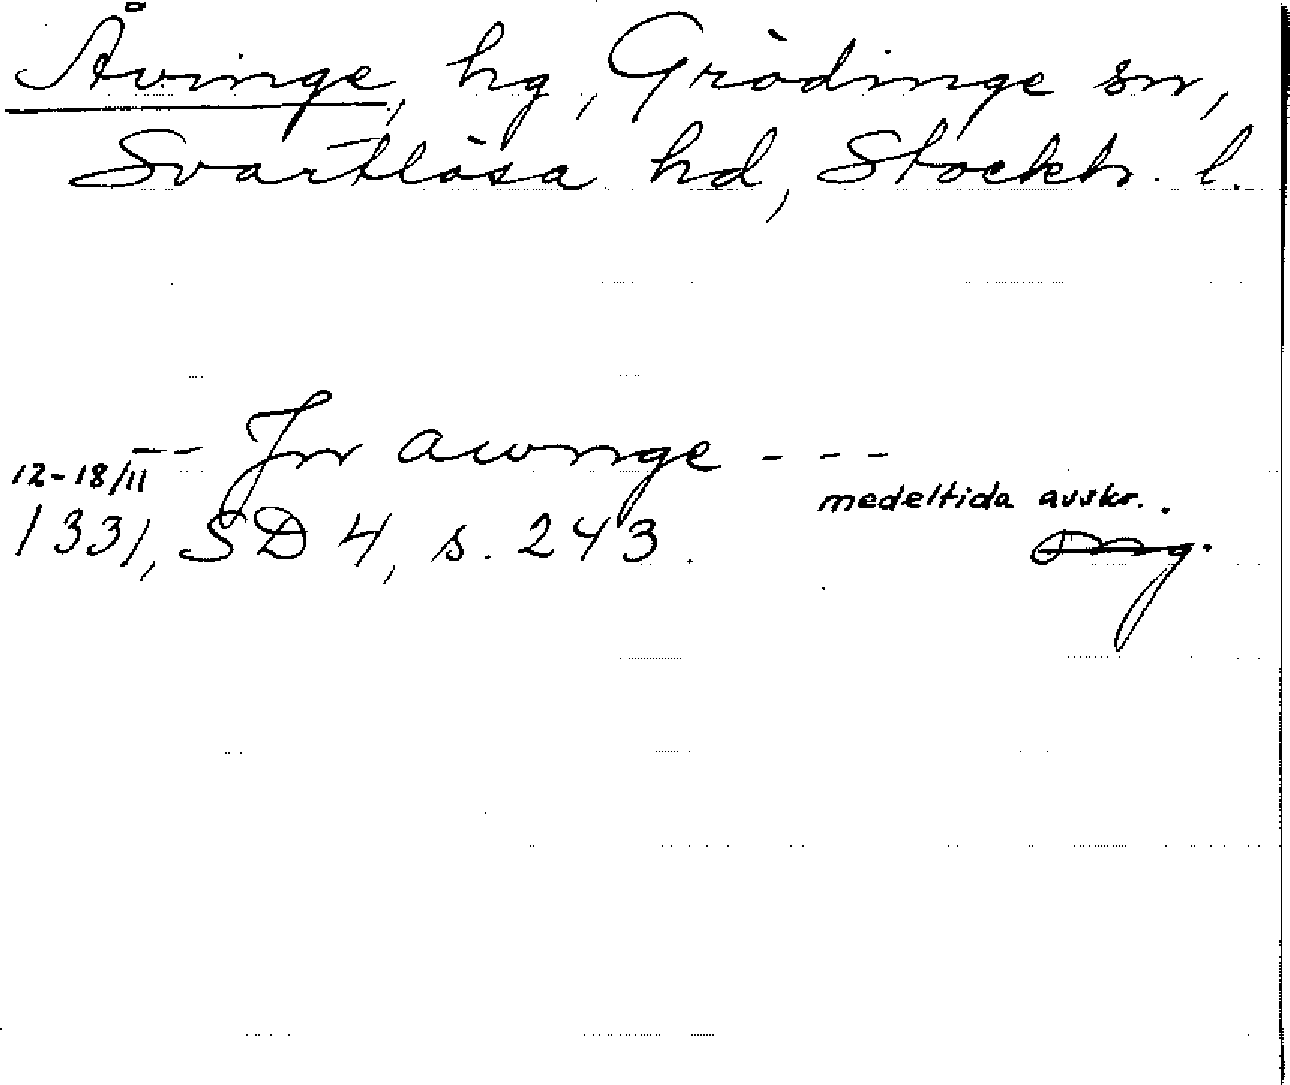 Åvinge, hg, Grödinge sn,
Svartlösa hd, Stockh. l.
-- Jn awnge ---
12-18/11 medeltida avskr..
1331, SD 4, s. 243.